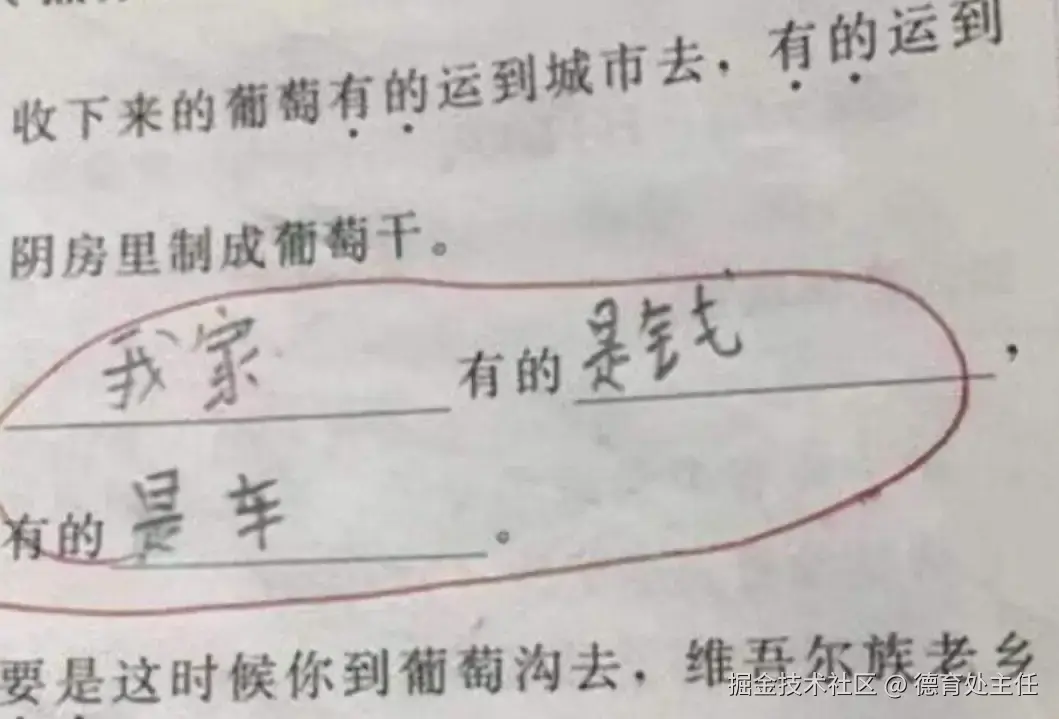 收下来的葡萄有的运到城市去，有的运到
阴房里制成葡萄干。
我家有的是钱，
有的是车。
要是这时候你到葡萄沟去，维吾尔族老乡
掘金技术社区 @ 德育处主任